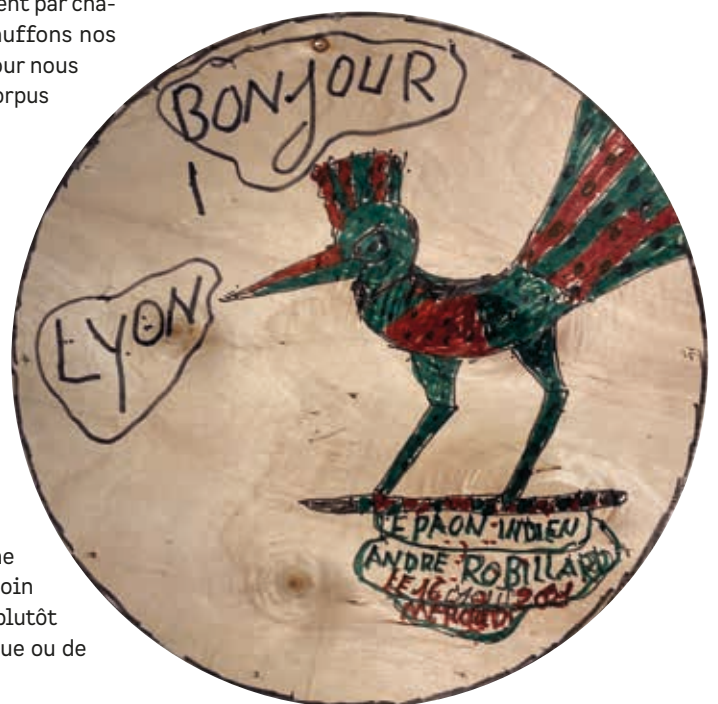 ent par cha-
uffons nos
our nous
orpus
BONJOUR
LYON
LE PAON INDIEN
ANDRE ROBILLARD
LE 16 2021
MERCREDI
ne
oin
plutôt
ue ou de